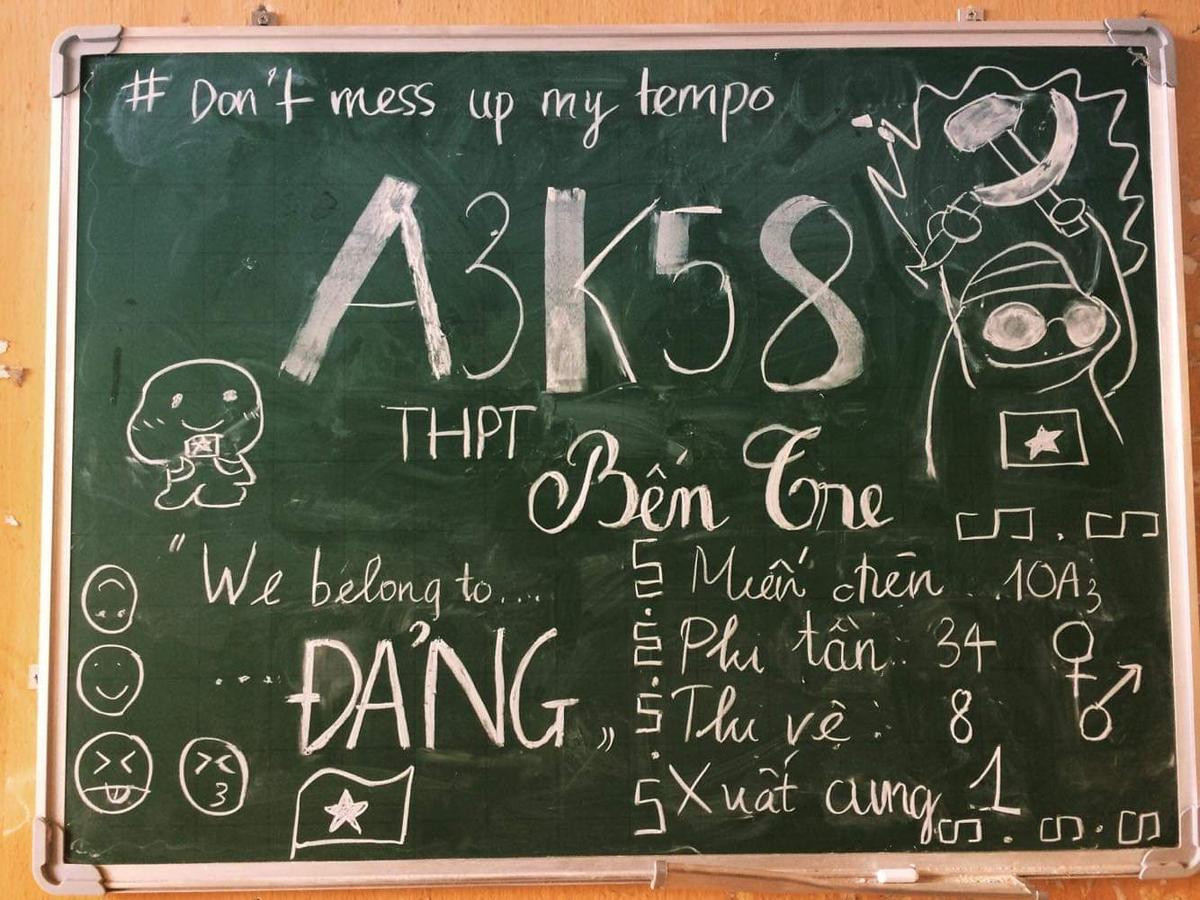 # Don't mess up my tempo
A3K58
THPT
Bến Tre
"We belong to....
.... ĐẢNG"
10A3
Phi tần: 34
Thị vệ: 8
Xuất cung 1